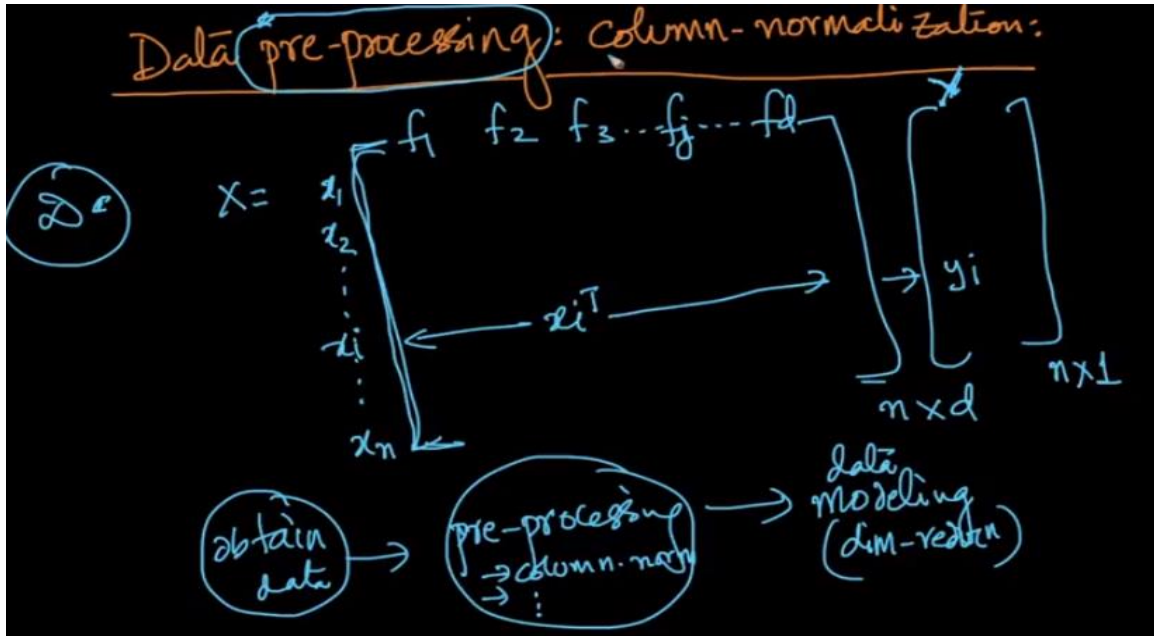 Data pre-processing: column-normalization:
f1 f2 f3 ... fj ... fd
D
X=
x1
x2
xi
xn
xiᵀ
n×d
yi
n×1
obtain
data
pre-processing
→ column.norm
→
data
modeling